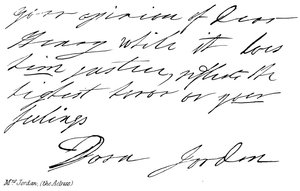 your opinion of Dear
George while it does
him justice, reflects the
highest honor on your
feelings
Dora Jordan
Mrs Jordan, (the Actress)